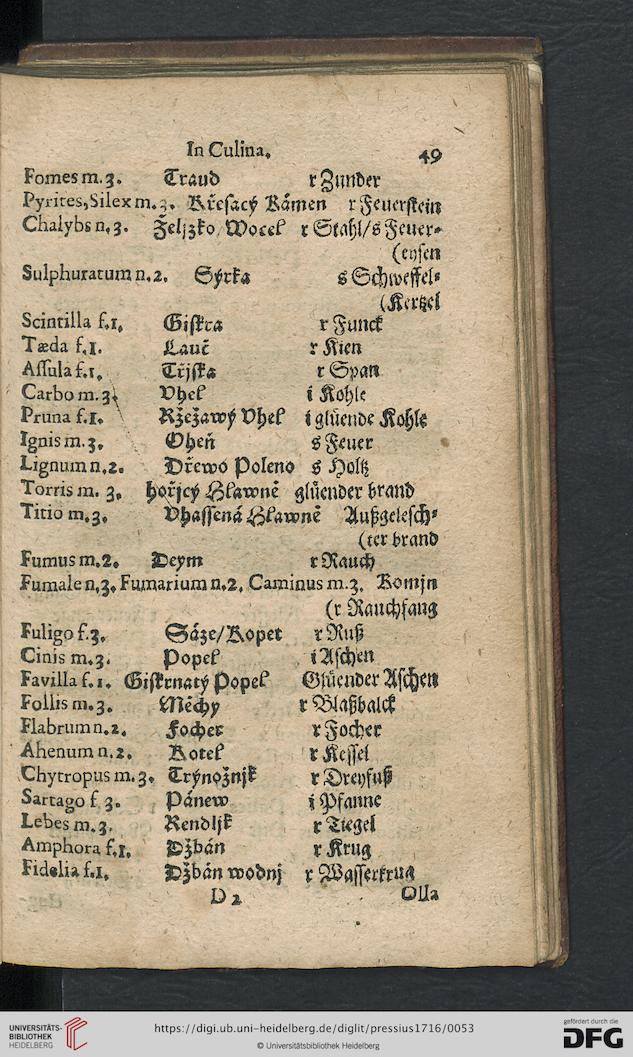 In Culina. 49
Fomes m. 3. Traud r Zunder
Pyrites, Silex m. 3. Křesacý Kámen r Feuerstein
Chalybs n. 3. Železko / Wocel r Stahl / s Feuer-
(eysen
Sulphuratum n. 2. Sýrka s Schweffel-
(Kertzel
Scintilla f. 1. Giskra r Funck
Tæda f. 1. Lauč r Kien
Assula f. 1. Třjska r Span
Carbo m. 3. Vhel i Kohle
Pruna f. 1. Ržežawý Vhel i glüende Kohle
Ignis m. 3. Oheň s Feuer
Lignum n. 2. Dřewo Poleno s Holtz
Torris m. 3. hořjcý Hlawně glüender brand
Titio m. 3. Vhassená Hlawně Außgelesch-
(ter brand
Fumus m. 2. Deym r Rauch
Fumale n. 3. Fumarium n. 2. Caminus m. 3. Komjn
(r Rauchfang
Fuligo f. 3. Sáze / Kopet r Ruß
Cinis m. 3. Popel i Aschen
Favilla f. 1. Giskrnatý Popel Glüender Aschen
Follis m. 3. Měchy r Blaßbalck
Flabrum n. 2. Focher r Focher
Ahenum n. 2. Kotel r Kessel
Chytropus m. 3. Trýnožnjk r Dreyfuß
Sartago f. 3. Pánew i Pfanne
Lebes m. 3. Rendljk r Tiegel
Amphora f. 1. Džbán r Krug
Fidelia f. 1. Džbán wodnj r Wasserkrug
D 2 Olla
UNIVERSITÄTS-
BIBLIOTHEK
HEIDELBERG
https://digi.ub.uni-heidelberg.de/diglit/pressius1716/0053
© Universitätsbibliothek Heidelberg
gefördert durch die
DFG